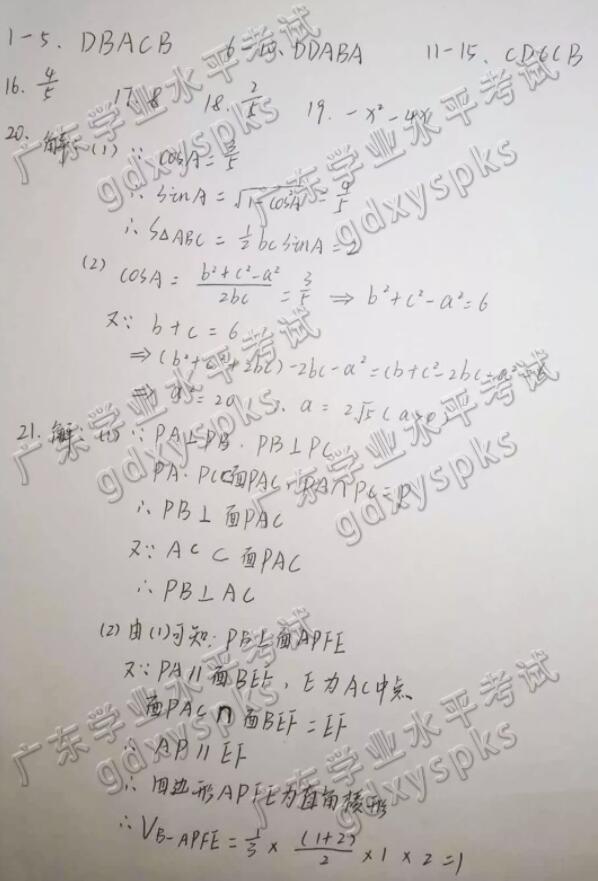 1-5、DBACB 6-10、DDABA 11-15、CDCCB
16. 4/5 17. 8 18. 2/5 19. -x²-4x
20、解:(1) ∵ cosA = 3/5
∴ sinA = √(1-cos²A) = 4/5
∴ S△ABC = 1/2 bc sinA = 2
(2) cosA = (b²+c²-a²)/(2bc) = 3/5 ⇒ b²+c²-a²=6
又∵ b+c=6
⇒ (b²+c²+2bc)-2bc-a²=(b+c)²-2bc-a²=6
⇒ a²=20, ∴ a=2√5 (a>0)
21. 解:(1) ∵ PA⊥PB, PB⊥PC
PA、PC⊂面PAC, PA∩PC=P
∴ PB⊥面PAC
又∵ AC⊂面PAC
∴ PB⊥AC
(2) 由(1)可知: PB⊥面APFE
又∵ PA∥面BEF, E为AC中点
面PAC∩面BEF=EF
∴ AP∥EF
∴ 四边形APFE为直角梯形
∴ V_B-APFE = 1/3 × (1+2)/2 × 1 × 2 = 1
广东学业水平考试
gdxyspks
广东学业水平考试
gdxyspks
广东学业水平考试
gdxyspks
广东学业水平考试
gdxyspks
广东学业水平考试
gdxyspks
广东学业水平考试
gdxyspks